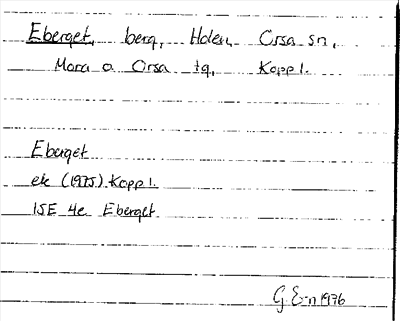 Eberget, berg, Holen, Orsa sn,
Mora o. Orsa tg, Kopp l.
Eberget
ek (1975) Kopp l.
15E 4e Eberget
G. E-n 1976